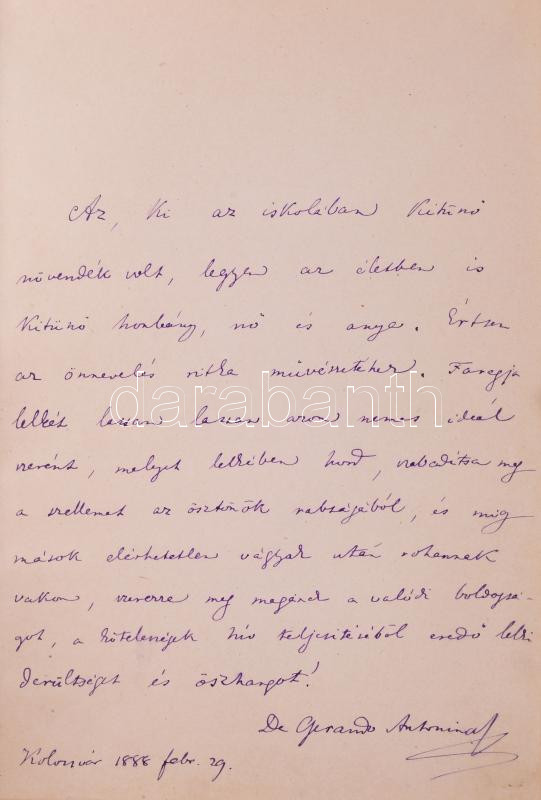 Az, ki az iskolában kitünő
növendék volt, legyen az életben is
kitünő honleány, nő és anya. Értsen
az önnevelés ritka művészetéhez. Faragja
lelkét lassan lassan azon nemes ideál
szerént, melyet lelkében hord, szabadítsa meg
a szellemet az ösztönök rabságából, és míg
mások elérhetetlen vágyak után rohannak
vakon, szerezze meg magának a valódi boldogsá-
got, a kötelességek hív teljesítéséből eredő lelki
derültséget és öszhangot!
De Gerando Antonina
Kolozsvár 1888 febr. 29.
darabanth